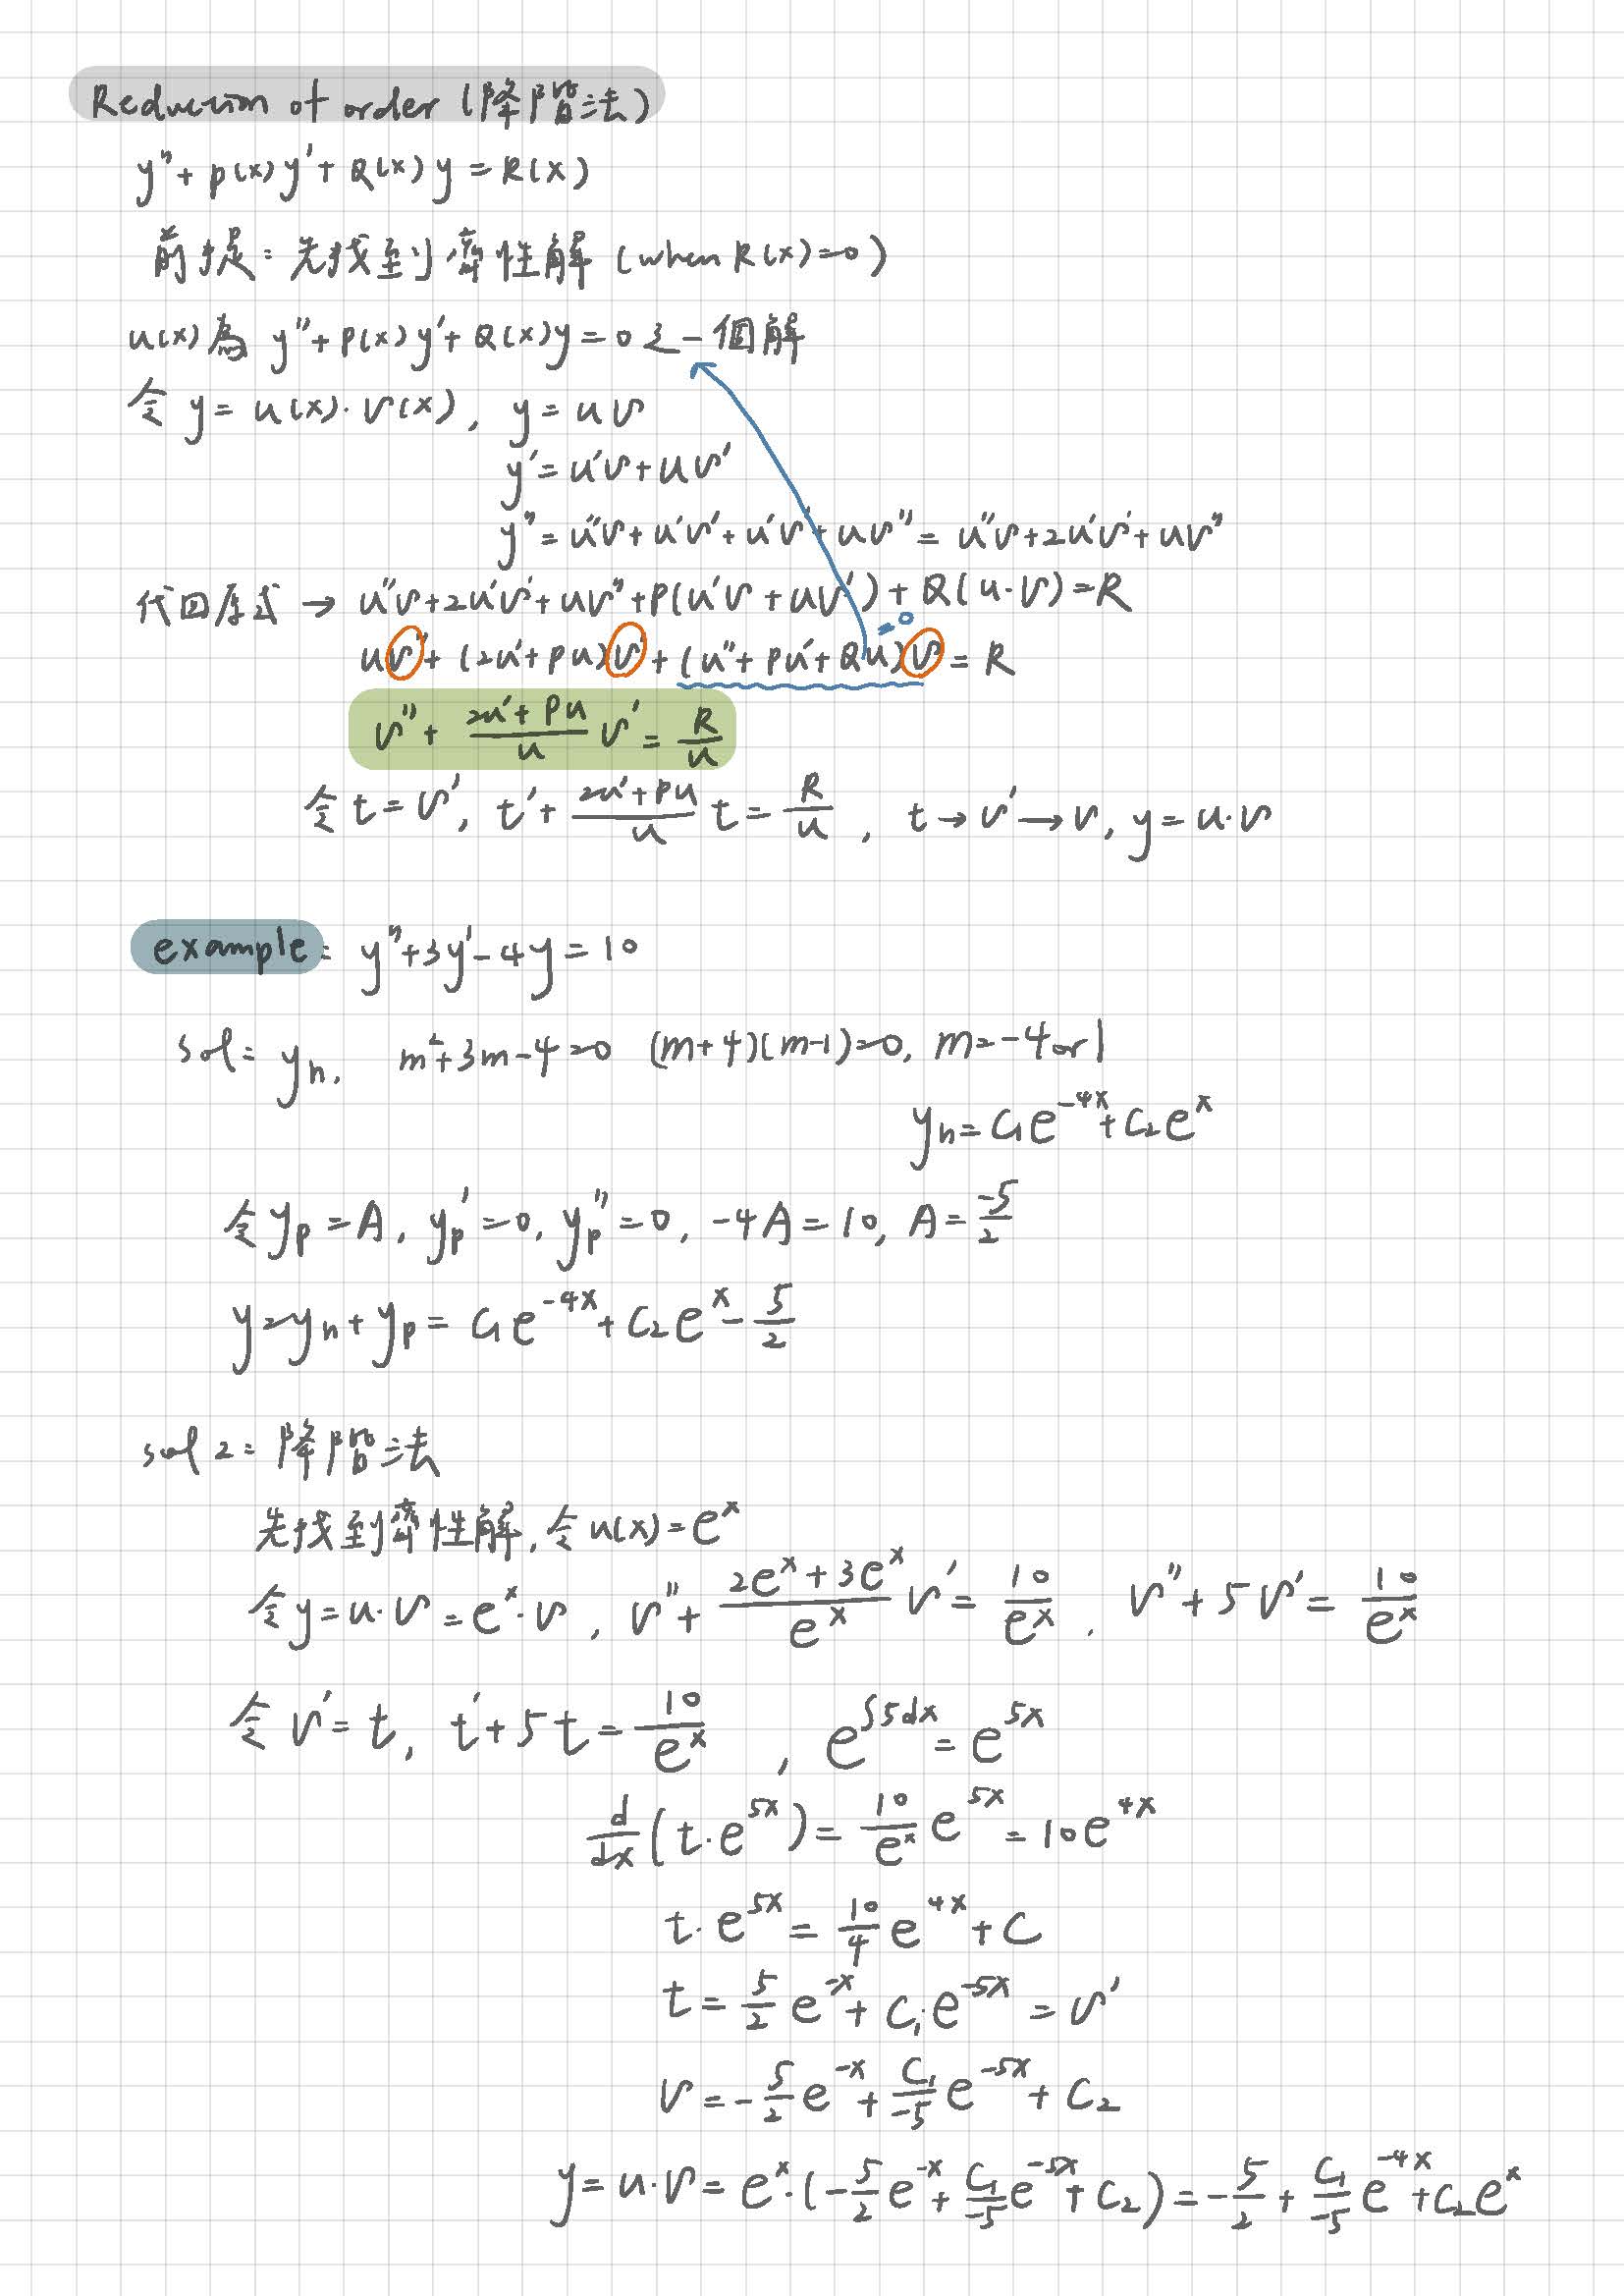 Reduction of order (降階法)
y''+p(x)y'+Q(x)y=R(x)
前提：先找到齊性解 (when R(x)=0)
u(x)為 y''+P(x)y'+Q(x)y=0 之一個解
令 y=u(x)·v(x), y=uv
y'=u'v+uv'
y''=u''v+u'v'+u'v'+uv''=u''v+2u'v'+uv''
代回原式 → u''v+2u'v'+uv''+P(u'v+uv')+Q(u·v)=R
uv''+(2u'+pu)v'+(u''+pu'+Qu)v=R
=0
v''+\frac{2u'+Pu}{u}v'=\frac{R}{u}
令 t=v', t'+\frac{2u'+Pu}{u}t=\frac{R}{u}, t→v'→v, y=u·v
example: y''+3y'-4y=10
sol: y_h, m²+3m-4=0 (m+4)(m-1)=0, m=-4 or 1
y_h=C₁e^{-4x}+C₂e^x
令 y_p=A, y_p'=0, y_p''=0, -4A=10, A=\frac{-5}{2}
y=y_h+y_p=C₁e^{-4x}+C₂e^x-\frac{5}{2}
sol 2: 降階法
先找到齊性解,令 u(x)=e^x
令 y=u·v=e^x·v, v''+\frac{2e^x+3e^x}{e^x}v'=\frac{10}{e^x}, v''+5v'=\frac{10}{e^x}
令 v'=t, t'+5t=\frac{10}{e^x}, e^{∫5dx}=e^{5x}
\frac{d}{dx}(t·e^{5x})=\frac{10}{e^x}e^{5x}=10e^{4x}
t·e^{5x}=\frac{10}{4}e^{4x}+C
t=\frac{5}{2}e^{-x}+C₁e^{-5x}=v'
v=-\frac{5}{2}e^{-x}+\frac{C₁}{-5}e^{-5x}+C₂
y=u·v=e^x·(-\frac{5}{2}e^{-x}+\frac{C₁}{-5}e^{-5x}+C₂)=-\frac{5}{2}+\frac{C₁}{-5}e^{-4x}+C₂e^x